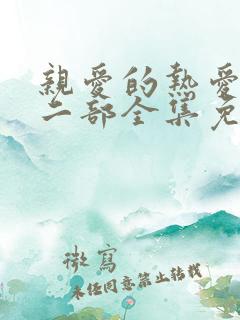 親愛的熱愛
二部全集免
微寫
未任同意禁止轉載